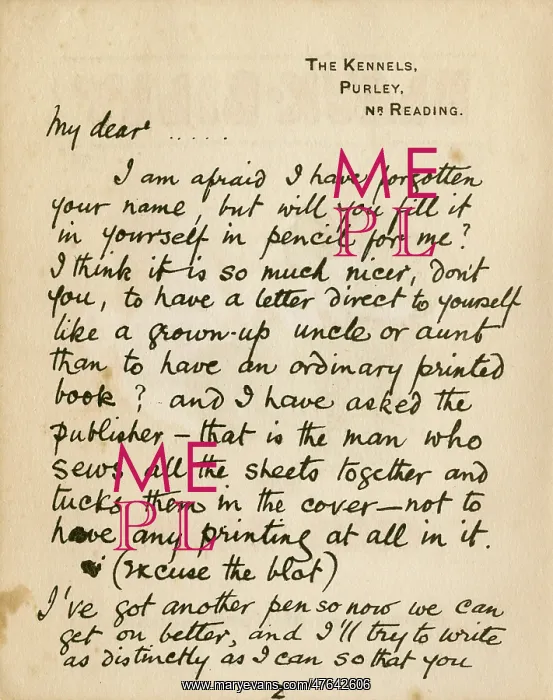 THE KENNELS,
PURLEY,
NR READING.
My dear .....
I am afraid I have forgotten
your name, but will you fill it
in yourself in pencil for me?
I think it is so much nicer, don't
you, to have a letter direct to yourself
like a grown-up uncle or aunt
than to have an ordinary printed
book? and I have asked the
publisher – that is the man who
sews all the sheets together and
tucks them in the cover – not to
have any printing at all in it.
(excuse the blot)
I've got another pen so now we can
get on better, and I'll try to write
as distinctly as I can so that you
2
ME
PL
ME
PL
www.maryevans.com/47642606